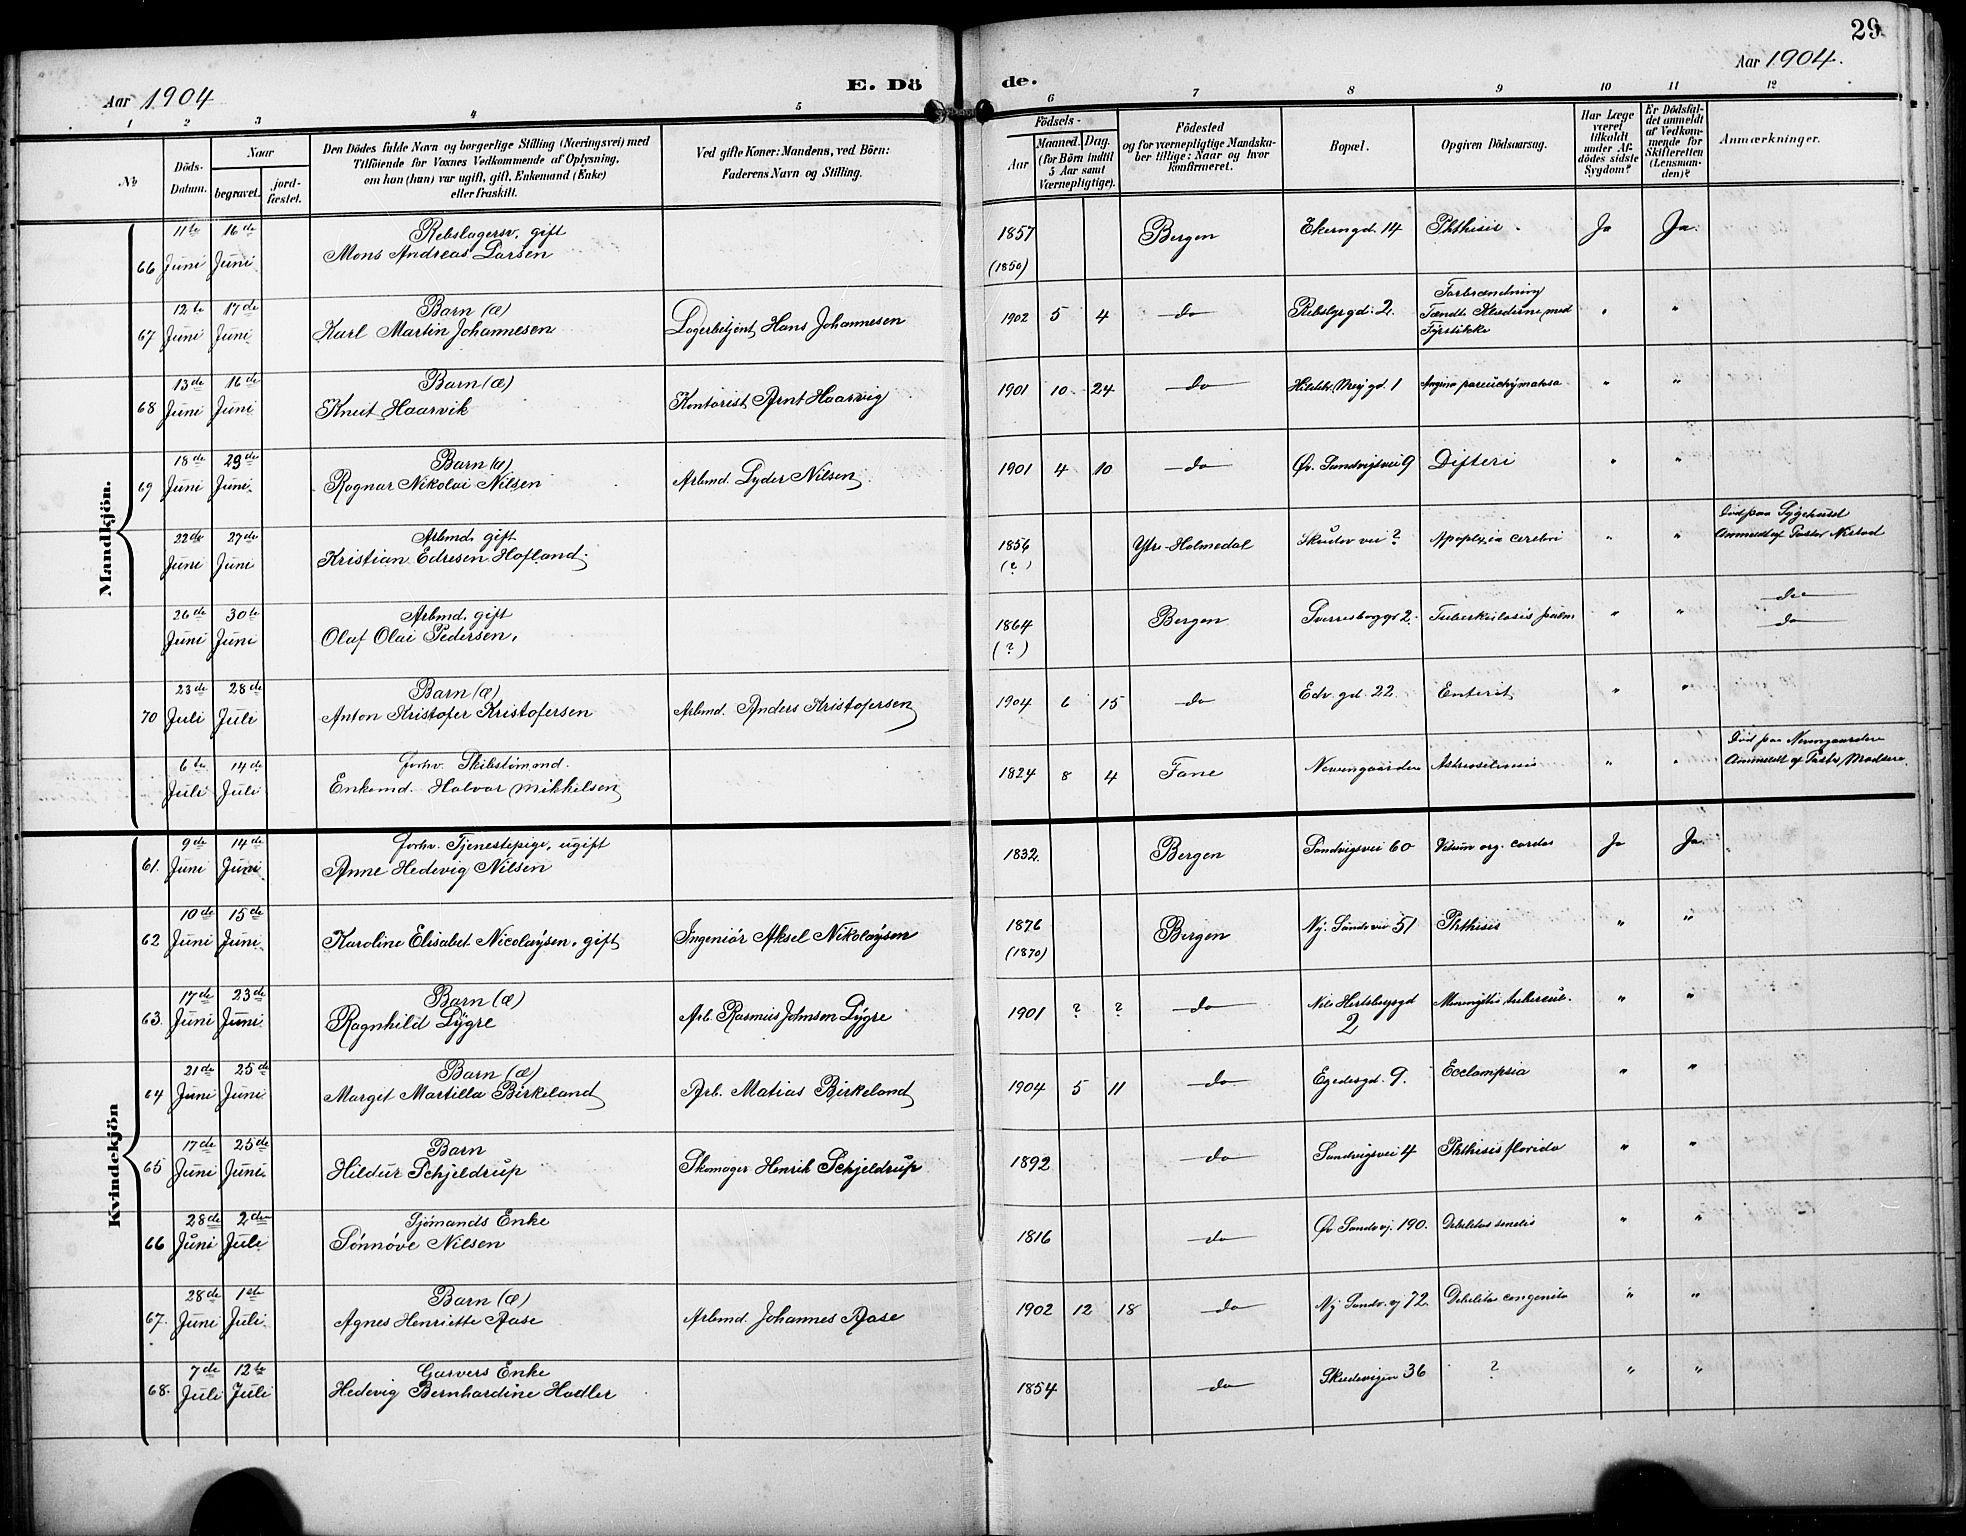 29
Aar 1904
E. Dö
de.
Aar 1904.
1 2 3 4 5 6 7 8 9 10 11 12
No
Döds-
Datum.
Naar
begravet.
jord-
fæstet.
Den Dödes fulde Navn og borgerlige Stilling (Næringsvei) med
Tilföiende for Voxnes Vedkommende af Oplysning,
om han (hun) var ugift, gift, Enkemand (Enke)
eller fraskilt.
Ved gifte Koner: Mandens, ved Börn:
Faderens Navn og Stilling.
Födsels-
Aar
Maaned.
Dag.
(for Börn indtil
5 Aar samt
Værnepligtige).
Födested
og for værnepligtige Mandska-
ber tillige: Naar og hvor
konfirmeret.
Bopæl.
Opgiven Dödsaarsag.
Har Læge
været
tilkaldt
under Af-
dödes sidste
Sygdom?
Er Dödsfal-
det anmeldt
af Vedkom-
mende for
Skifteretten
(Lensman-
den)?
Anmærkninger.
Mandkjön.
66 11te Juni 16de Juni Rebslagersv. gift
Mons Andreas Larsen 1857 (1850) Bergen Ekerngd. 14 Phthisis Ja Ja.
67 12te Juni 17de Juni Barn (æ)
Karl Martin Johannesen Lagerbetjent Hans Johannesen 1902 5 4 do Rebslgrgd. 2. Forbrændning
Tændte Klæderne med
Fyrstikke " "
68 13de Juni 16de Juni Barn (æ)
Knut Haarvik Kontorist Arnt Haarvig 1901 10 24 do gd 1 Angina parenchymatosa " "
69 18de Juni 29de Juni. Barn (æ)
Ragnar Nikolai Nilsen Arbmd. Lyder Nilsen 1901 4 10 do Øv. Sandvigsvei 9 Difteri " "
22de Juni 27de Juni Arbmd. gift
Kristian Edresen Hofland. 1856 (?) Ytre-Holmedal vei ? Apoplexia cerebri " " Död paa Sygehuset
Anmeldt af Pastor
26de Juni 30te Juni Arbmd. gift
Olaf Olai Pedersen. 1864 (?) Bergen Sverresborggt 2. Tuberkulosis pulm " " do
do
70 23de Juli 28de Juli Barn (æ)
Anton Kristofer Kristofersen Arbmd. Anders Kristofersen 1904 6 15 do Edv. gd. 22 Enterit " "
6te Juli 14de Juli forhv. Skibstömmd.
Enkemd. Halvor Mikkelsen 1824 8 4 Fane Nevengaarden " " Död paa Nevengaarden
Anmeldt af Pastor Madsen.
Kvindekjön
61. 9de Juni 14de Juni forhv. Tjenestepige, ugift
Anne Hedevig Nilsen 1832. Bergen Sandvigsvei 60 Vitium org. cordis Ja Ja.
62 10de Juni 15de Juni. Karoline Elisabet Nicolaysen. gift Ingeniör Aksel Nikolaysen 1876 (1870) Bergen Ny. Sandvei 51 Phthisis " "
63. 17de Juni 23de Juni. Barn (æ)
Ragnhild Lygre Arb. Rasmus Johnsen Lygre 1901 ? ? do Nils Hertsbergsgd
2 Meningitis tubercul. " "
64 21de Juni 25de Juni Barn (æ)
Margit Martilla Birkeland Arb. Matias Birkeland 1904 5 11 do Egedesgd. 9. Ecclampsia " "
65 17de Juni 25de Juni. Barn
Hildur Schjeldrup Skomager Henrik Schjeldrup 1892 do Sandvigsvei 4 Phthisis florida " "
66 28de Juni 2den Juli Sjömands Enke
Sönnöve Nilsen 1816 do Øv Sandvj. 190. Debilitas senilis " "
67. 28de Juni 1ste Juli. Barn (æ)
Agnes Henriette Aase Arbmd. Johannes Aase 1902 12 18 do Ny Sandv. vj 72. Debilitas congenita " "
68. 7de Juli 12te Juli Garvers Enke
Hedevig Bernhardine Hadler 1854 do Skudevigen 36 ? " "